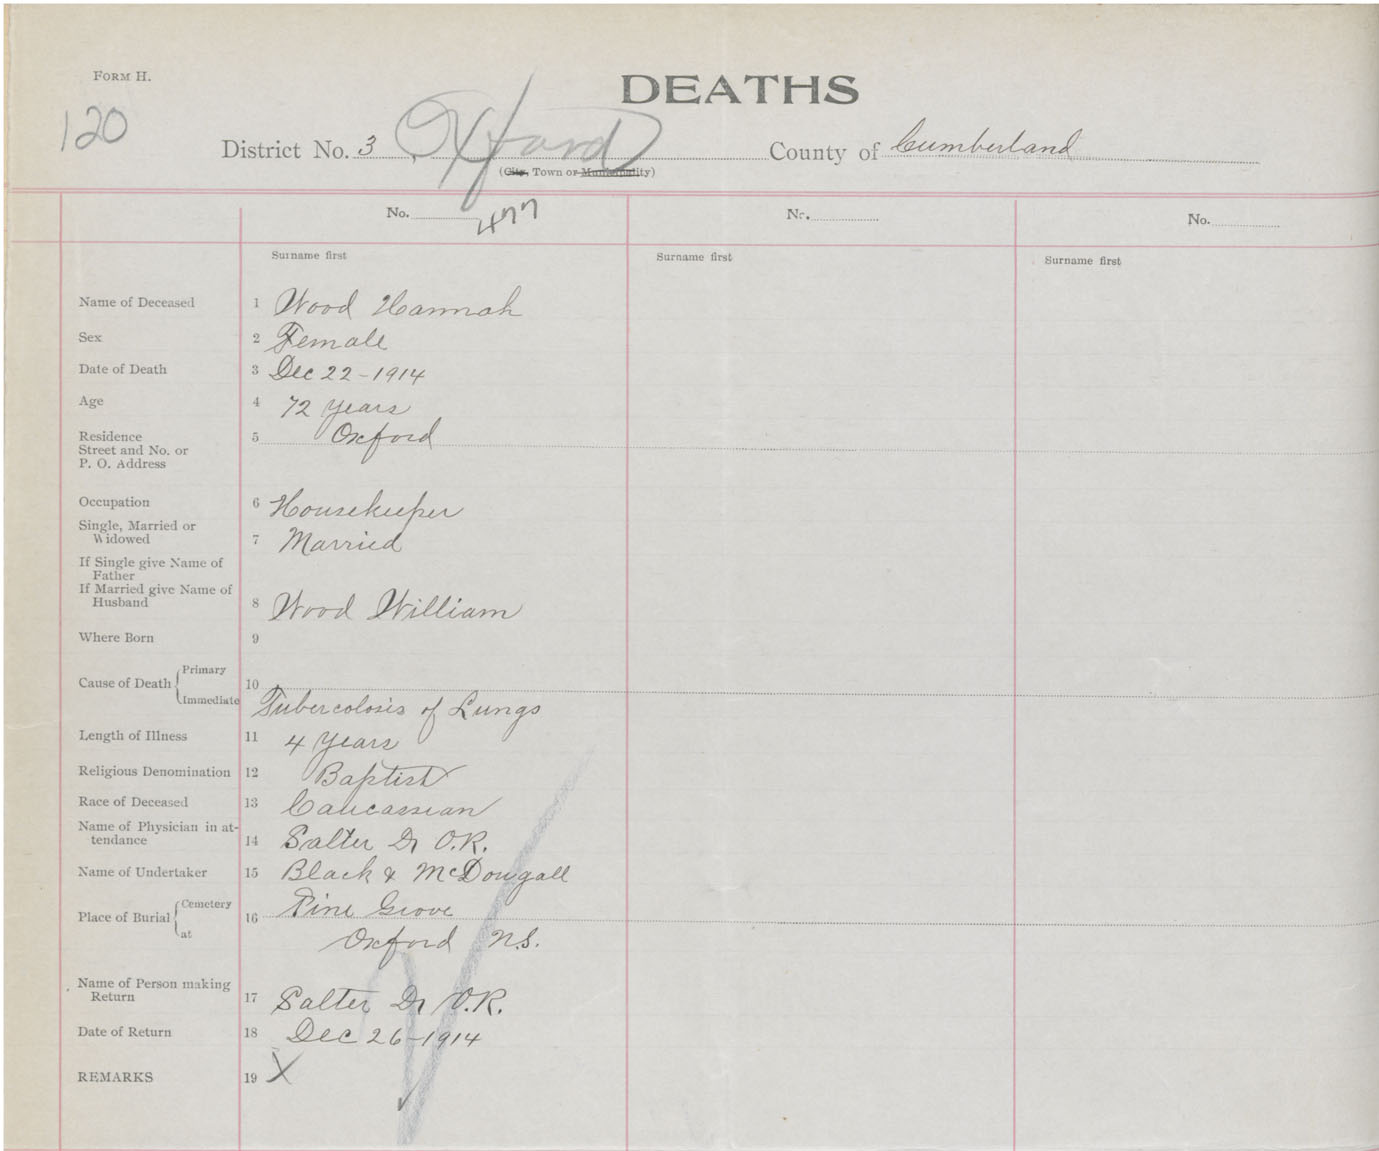 FORM H.
DEATHS
120
District No. 3, Oxford County of Cumberland
(City, Town or Municipality)
No. 477 No. No.
Surname first Surname first Surname first
Name of Deceased 1 Wood Hannah
Sex 2 Female
Date of Death 3 Dec 22-1914
Age 4 72 years
Residence 5 Oxford
Street and No. or
P. O. Address
Occupation 6 Housekeeper
Single, Married or
Widowed 7 Married
If Single give Name of
Father
If Married give Name of
Husband 8 Wood William
Where Born 9
Primary
Cause of Death 10
Immediate Tubercolosis of Lungs
Length of Illness 11 4 years
Religious Denomination 12 Baptist
Race of Deceased 13 Caucassian
Name of Physician in at-
tendance 14 Salter Dr O.R.
Name of Undertaker 15 Black & McDougall
Cemetery Pine Grove
Place of Burial 16
at Oxford N.S.
Name of Person making
Return 17 Salter Dr O.R.
Date of Return 18 Dec 26-1914
REMARKS 19 X